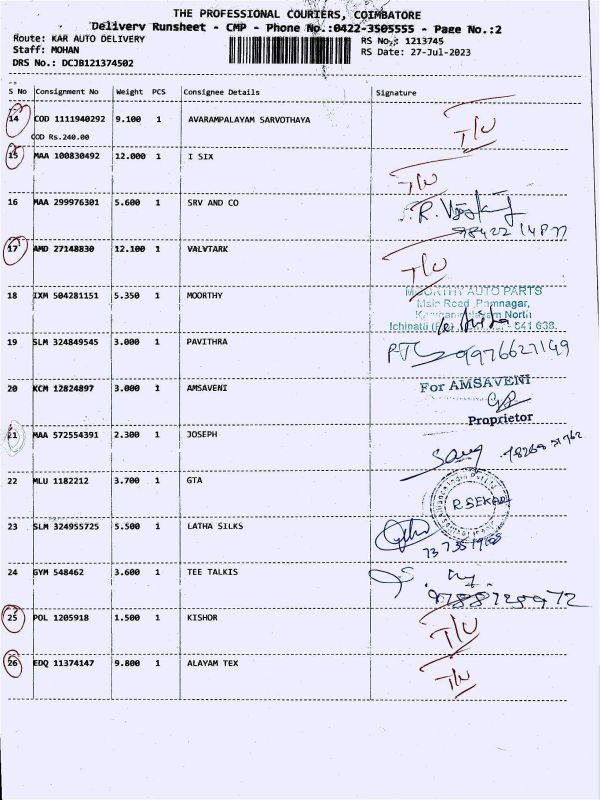 THE PROFESSIONAL COURIERS, COIMBATORE
Delivery Runsheet - CMP - Phone No.:0422-3505555 - Page No.:2
Route: KAR AUTO DELIVERY
Staff: MOHAN
DRS No.: DCJB121374502
RS No.: 1213745
RS Date: 27-Jul-2023
S No Consignment No Weight PCS Consignee Details Signature
14 COD 1111940292 9.100 1 AVARAMPALAYAM SARVOTHAYA T/U
COD Rs.240.00
15 MAA 100830492 12.000 1 I SIX T/U
16 MAA 299976301 5.600 1 SRV AND CO
17 AMD 27148830 12.100 1 VALVTARK T/U
18 IXM 504281151 5.350 1 MOORTHY
MOORTHY AUTO PARTS
Main Road, Ramnagar,
North
641 038.
19 SLM 324849545 3.000 1 PAVITHRA 9976627149
20 KCM 12824897 3.000 1 AMSAVENI
For AMSAVENI
Proprietor
21 MAA 572554391 2.300 1 JOSEPH
22 MLU 1182212 3.700 1 GTA
R SEKAR
23 SLM 324955725 5.500 1 LATHA SILKS
24 GYM 548462 3.600 1 TEE TALKIS
9788728972
25 POL 1205918 1.500 1 KISHOR T/U
26 EDQ 11374147 9.800 1 ALAYAM TEX T/U